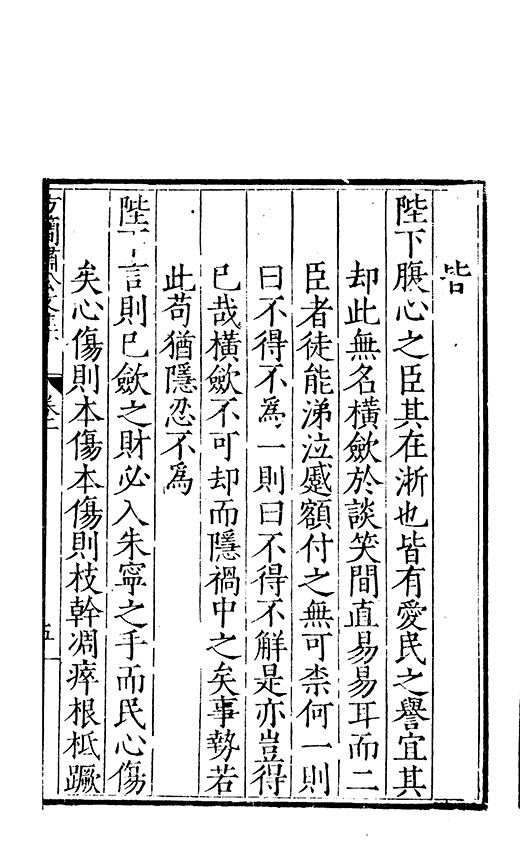 皆
陛下腹心之臣其在浙也皆有愛民之譽宜其
却此無名橫歛於談笑間直易易耳而二
臣者徒能涕泣蹙額付之無可柰何一則
曰不得不為一則曰不得不觧是亦豈得
已哉橫歛不可却而隱禍中之矣事勢若
此苟猶隱忍不為
陛下言則已歛之財必入朱寧之手而民心傷
矣心傷則本傷本傷則枝幹凋瘁根柢蹶
方簡肅公文集 卷二 五